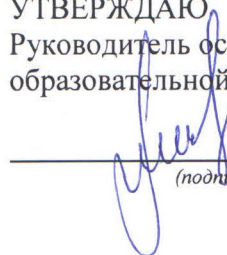 УТВЕРЖДАЮ
Руководитель ос
образовательной
(подп